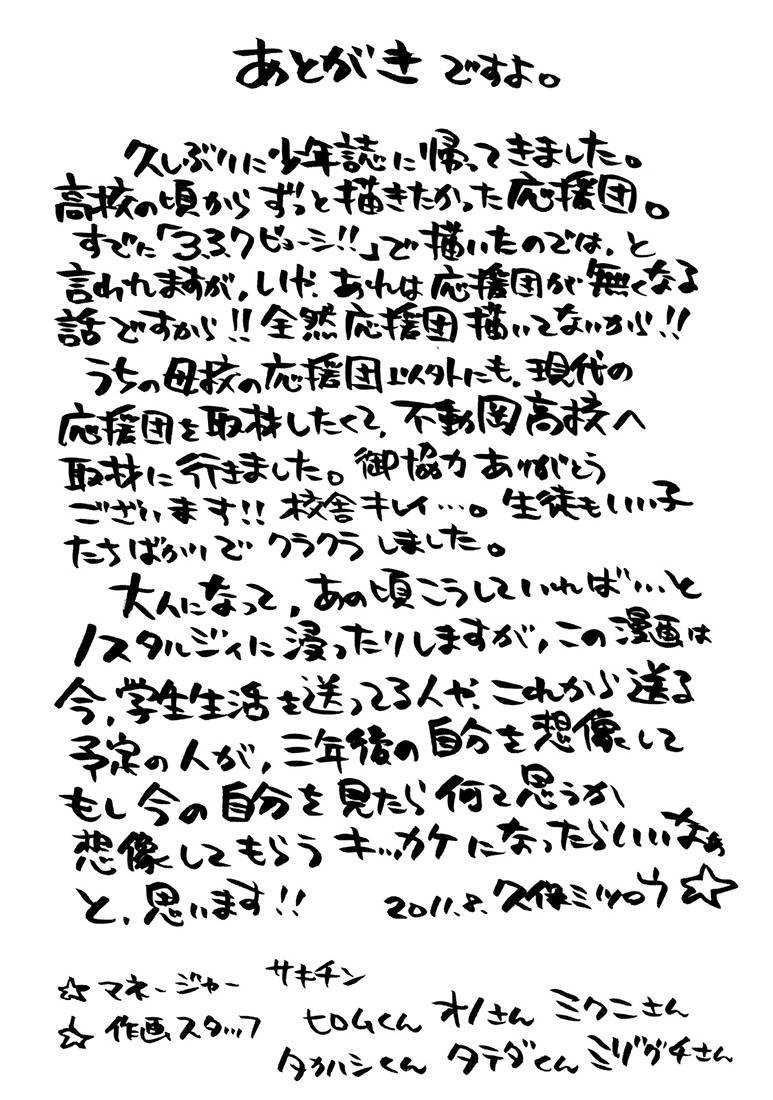 あとがきですよ。
久しぶりに少年誌に帰ってきました。
高校の頃からずっと描きたかった応援団。
すでに「3.3.7ビョーシ!!」で描いたのでは、と
言われますが、いや、あれは応援団が無くなる
話ですから!!全然応援団描いてないから!!
うちの母校の応援団以外にも、現代の
応援団を取材したくて、不動岡高校へ
取材に行きました。御協力ありがとう
ございます!!校舎キレイ…。生徒もいい子
たちばかりでクラクラしました。
大人になって、あの頃こうしていれば…と
ノスタルジィに浸ったりしますが、この漫画は
今、学生生活を送ってる人や、これから送る
予定の人が、三年後の自分を想像して
もし今の自分を見たら何て思うか
想像してもらうキッカケになったらいいなぁ
と、思います!! 2011.8. 久保ミツロウ☆
☆マネージャー サキチン
☆作画スタッフ ヒロムくん オノさん ミクニさん
タカハシくん タテダくん ミゾグチさん